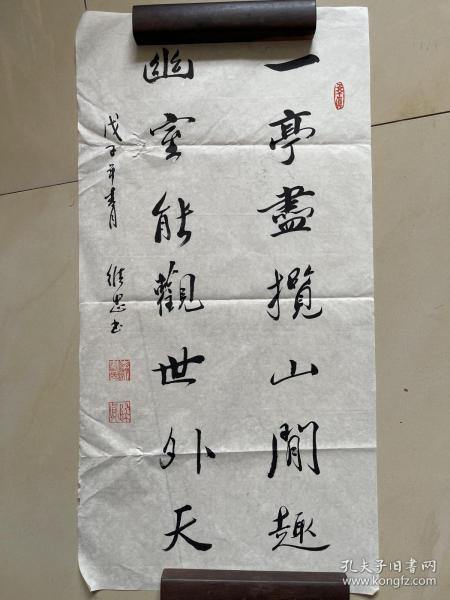 一亭盡攬山間趣
幽室能觀世外天
戊子年青月 維思书
孔夫子旧书网
www.kongfz.com